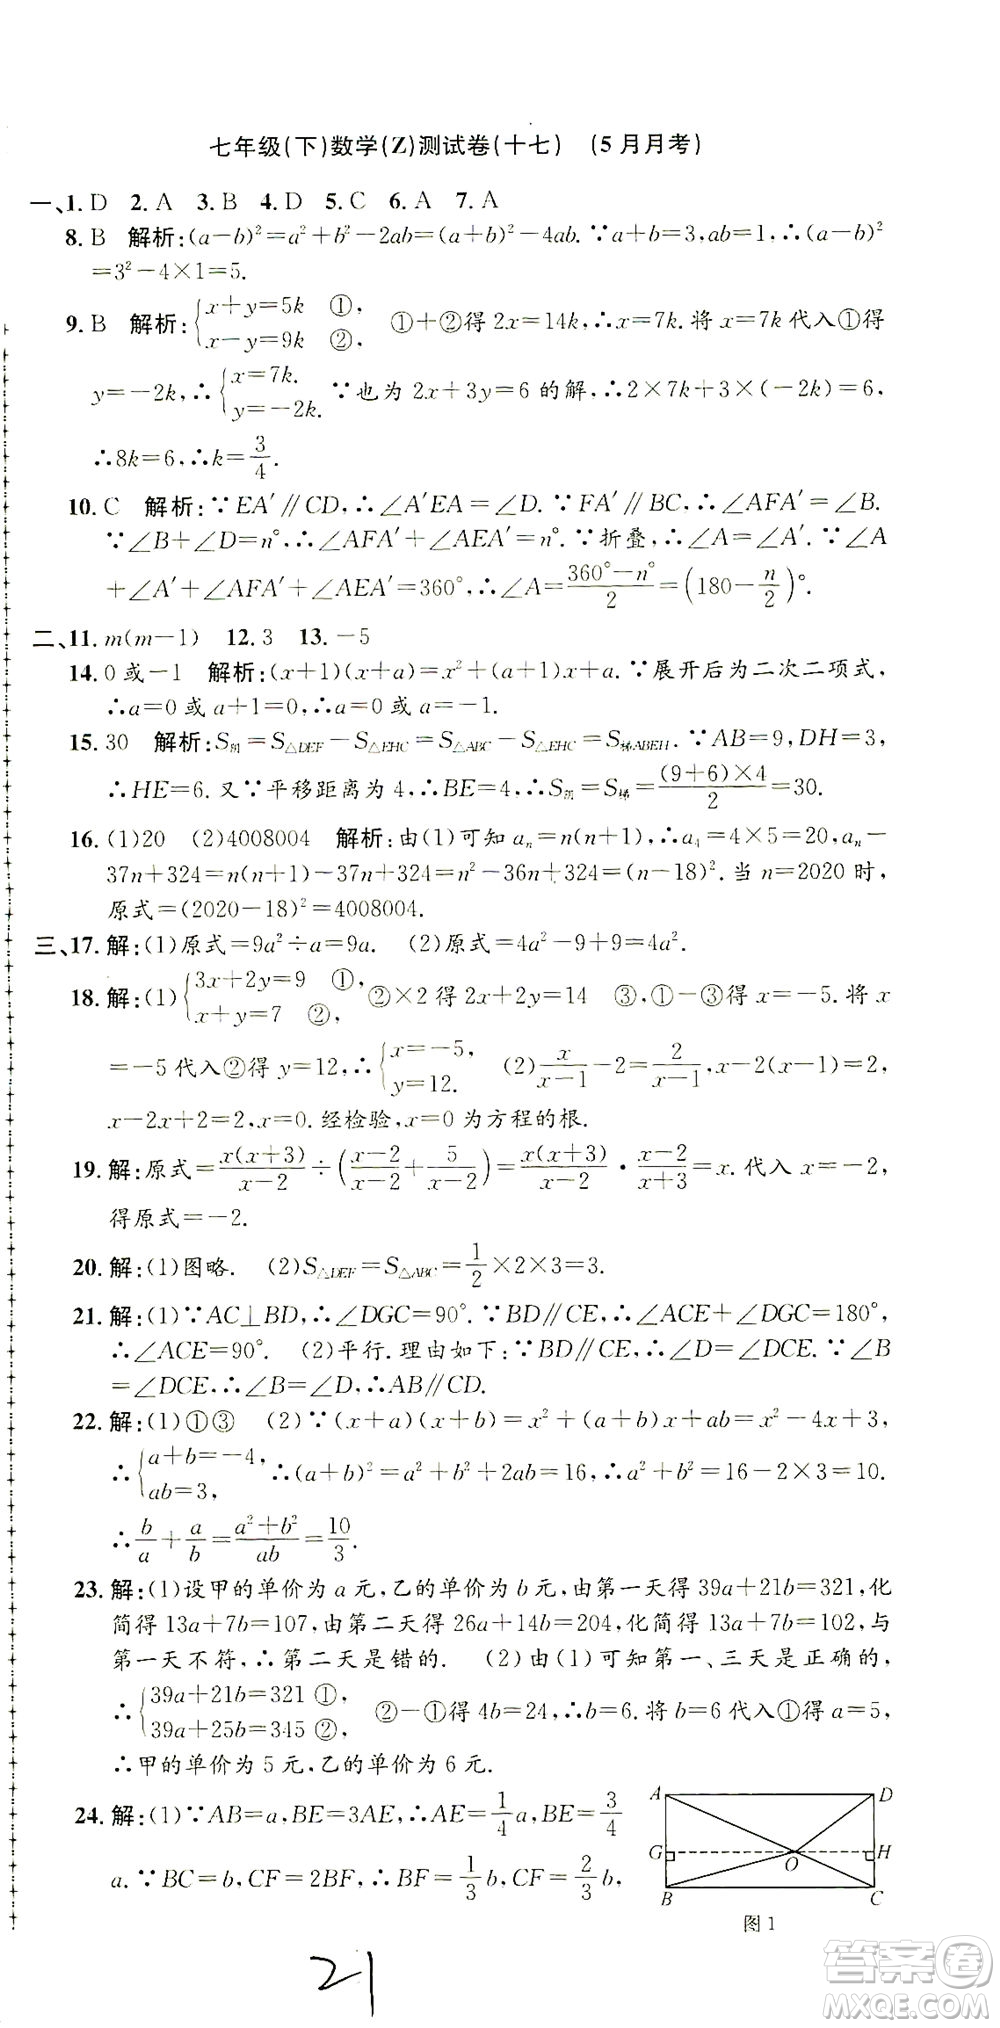 七年级(下)数学(Z)测试卷(十七) (5月月考)
一、1. D 2. A 3. B 4. D 5. C 6. A 7. A
8. B 解析:(a-b)²=a²+b²-2ab=(a+b)²-4ab.∵a+b=3,ab=1,∴(a-b)²
=3²-4×1=5.
9. B 解析:{x+y=5k ①, x-y=9k ②, ①+②得2x=14k,∴x=7k.将x=7k代入①得
y=-2k,∴{x=7k. y=-2k. ∵也为2x+3y=6的解,∴2×7k+3×(-2k)=6,
∴8k=6,∴k=3/4.
10. C 解析:∵EA′∥CD,∴∠A′EA=∠D.∵FA′∥BC,∴∠AFA′=∠B.
∵∠B+∠D=n°,∴∠AFA′+∠AEA′=n°.∵折叠,∴∠A=∠A′.∵∠A
+∠A′+∠AFA′+∠AEA′=360°,∴∠A=(360°-n°)/2=(180-n/2)°.
二、11. m(m-1) 12. 3 13. -5
14. 0或-1 解析:(x+1)(x+a)=x²+(a+1)x+a.∵展开后为二次二项式,
∴a=0或a+1=0,∴a=0或a=-1.
15. 30 解析:S阴=S△DEF-S△EHC=S△ABC-S△EHC=S梯ABEH.∵AB=9,DH=3,
∴HE=6.又∵平移距离为4,∴BE=4,∴S阴=S梯=(9+6)×4/2=30.
16. (1)20 (2)4008004 解析:由(1)可知aₙ=n(n+1),∴a₄=4×5=20,aₙ-
37n+324=n(n+1)-37n+324=n²-36n+324=(n-18)².当n=2020时,
原式=(2020-18)²=4008004.
三、17. 解:(1)原式=9a²÷a=9a. (2)原式=4a²-9+9=4a².
18. 解:(1){3x+2y=9 ① x+y=7 ②, ②×2得2x+2y=14 ③,①-③得x=-5.将x
=-5代入②得y=12,∴{x=-5, y=12. (2)x/(x-1)-2=2/(x-1),x-2(x-1)=2,
x-2x+2=2,x=0.经检验,x=0为方程的根.
19. 解:原式=x(x+3)/(x-2)÷((x-2)/(x-2)+5/(x-2))=x(x+3)/(x-2)·(x-2)/(x+3)=x.代入x=-2,
得原式=-2.
20. 解:(1)图略. (2)S△DEF=S△ABC=1/2×2×3=3.
21. 解:(1)∵AC⊥BD,∴∠DGC=90°.∵BD∥CE,∴∠ACE+∠DGC=180°,
∴∠ACE=90°. (2)平行.理由如下:∵BD∥CE,∴∠D=∠DCE.∵∠B
=∠DCE,∴∠B=∠D,∴AB∥CD.
22. 解:(1)①③ (2)∵(x+a)(x+b)=x²+(a+b)x+ab=x²-4x+3,
∴{a+b=-4, ab=3, ∴(a+b)²=a²+b²+2ab=16,∴a²+b²=16-2×3=10.
∴b/a+a/b=(a²+b²)/ab=10/3.
23. 解:(1)设甲的单价为a元,乙的单价为b元,由第一天得39a+21b=321,化
简得13a+7b=107,由第二天得26a+14b=204,化简得13a+7b=102,与
第一天不符,∴第二天是错的. (2)由(1)可知第一、三天是正确的,
∴{39a+21b=321 ①, 39a+25b=345 ②, ②-①得4b=24,∴b=6.将b=6代入①得a=5,
∴甲的单价为5元,乙的单价为6元.
24. 解:(1)∵AB=a,BE=3AE,∴AE=1/4a,BE=3/4
a.∵BC=b,CF=2BF,∴BF=1/3b,CF=2/3b,
A D
G O H
B C
图1
21
答案卷
MXQE.COM